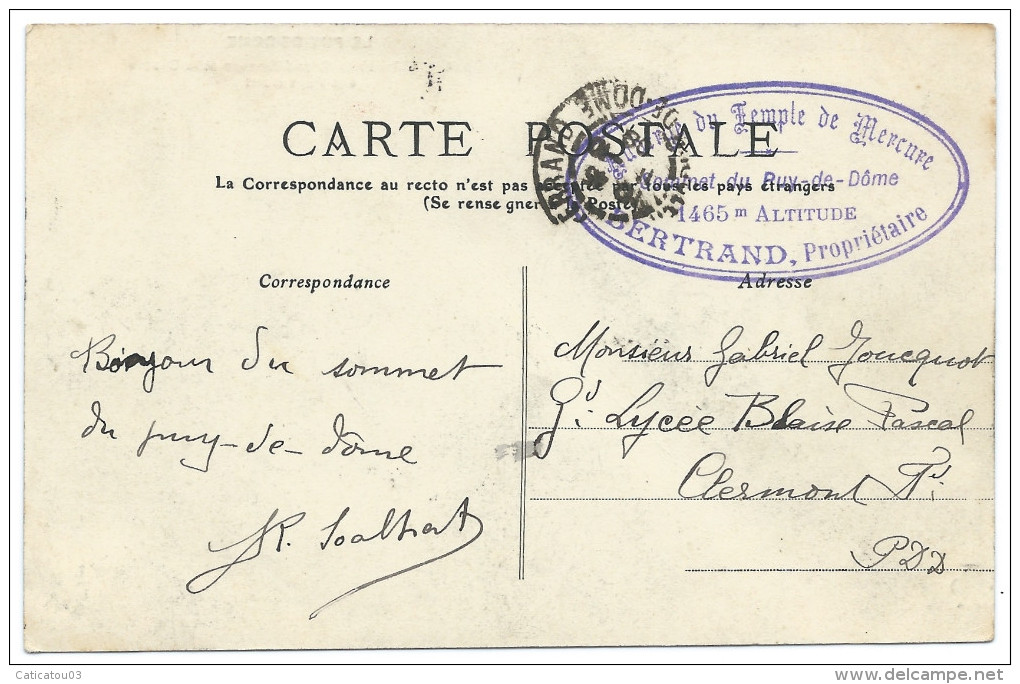 CARTE POSTALE
La Correspondance au recto n'est pas acceptée par tous les pays étrangers
(Se renseigner à la Poste)
du Temple de Mercure
Sommet du Puy-de-Dôme
1465 m ALTITUDE
BERTRAND, Propriétaire
DE-DOME
Correspondance
Adresse
Bonjour du sommet
du puy-de-dôme
Monsieur Gabriel
Lycée Blaise Pascal
Clermont Fd
PDD
Caticatou03
delcampe.net